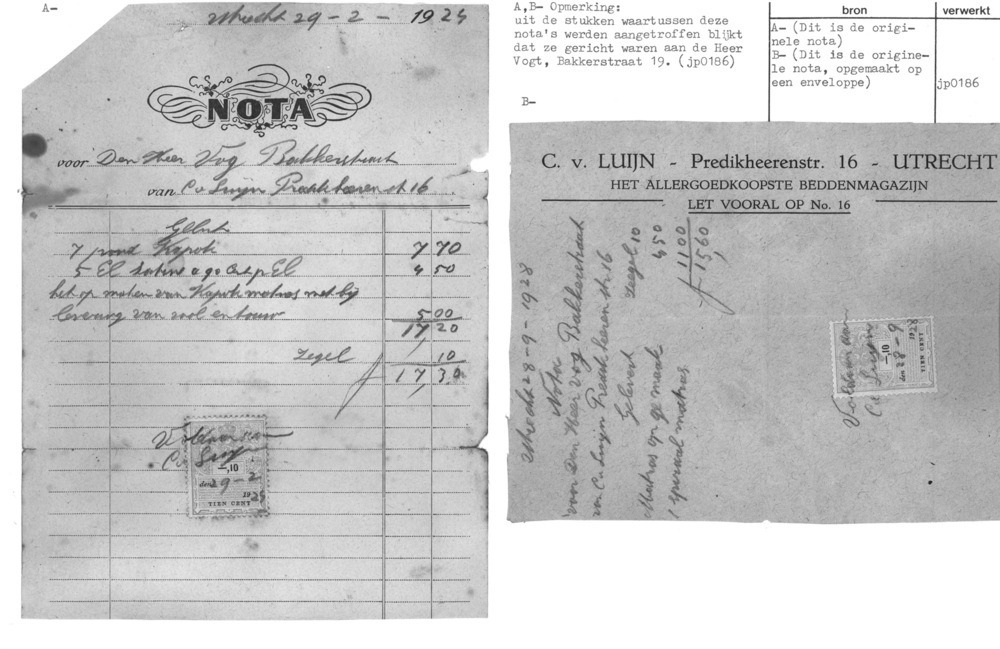 A-
Utrecht 29-2-1924
NOTA
voor Den Heer Vog Bakkerstraat
van C v Luijn Predikheeren st 16
Gelevert
7 pond Kapok 7 70
5 El Satine a 90 Cent p El 4 50
het op maken van Kapok matras met bij
levering van wol en touw 5 00
17 20
Zegel 10
f 17,30
Voldaan aan
C v Luijn
-,10
den 29-2
TIEN CENT
A,B- Opmerking:
uit de stukken waartussen deze
nota's werden aangetroffen blijkt
dat ze gericht waren aan de Heer
Vogt, Bakkerstraat 19. (jp0186)
bron
verwerkt
A- (Dit is de origi-
nele nota)
B- (Dit is de origine-
le nota, opgemaakt op
een enveloppe)
jp0186
B-
C. v. LUIJN - Predikheerenstr. 16 - UTRECHT
HET ALLERGOEDKOOPSTE BEDDENMAGAZIJN
LET VOORAL OP No. 16
Utrecht 28-9-1928
Nota
voor Den Heer Vog Bakkerstraat
van C v Luijn Predikheeren st 16
Gelevert
Matras op ge maak 4 50
1 spiraal matras 11 00
Zegel 10
f 15,60
Voldaan aan
C v Luijn
-,10
den 28-9 1928
TIEN CENT